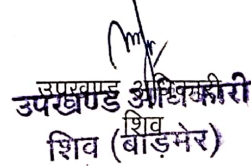 उपखण्ड अधिकारी
उपखण्ड अधिकारी
शिव
शिव (बाड़मेर)